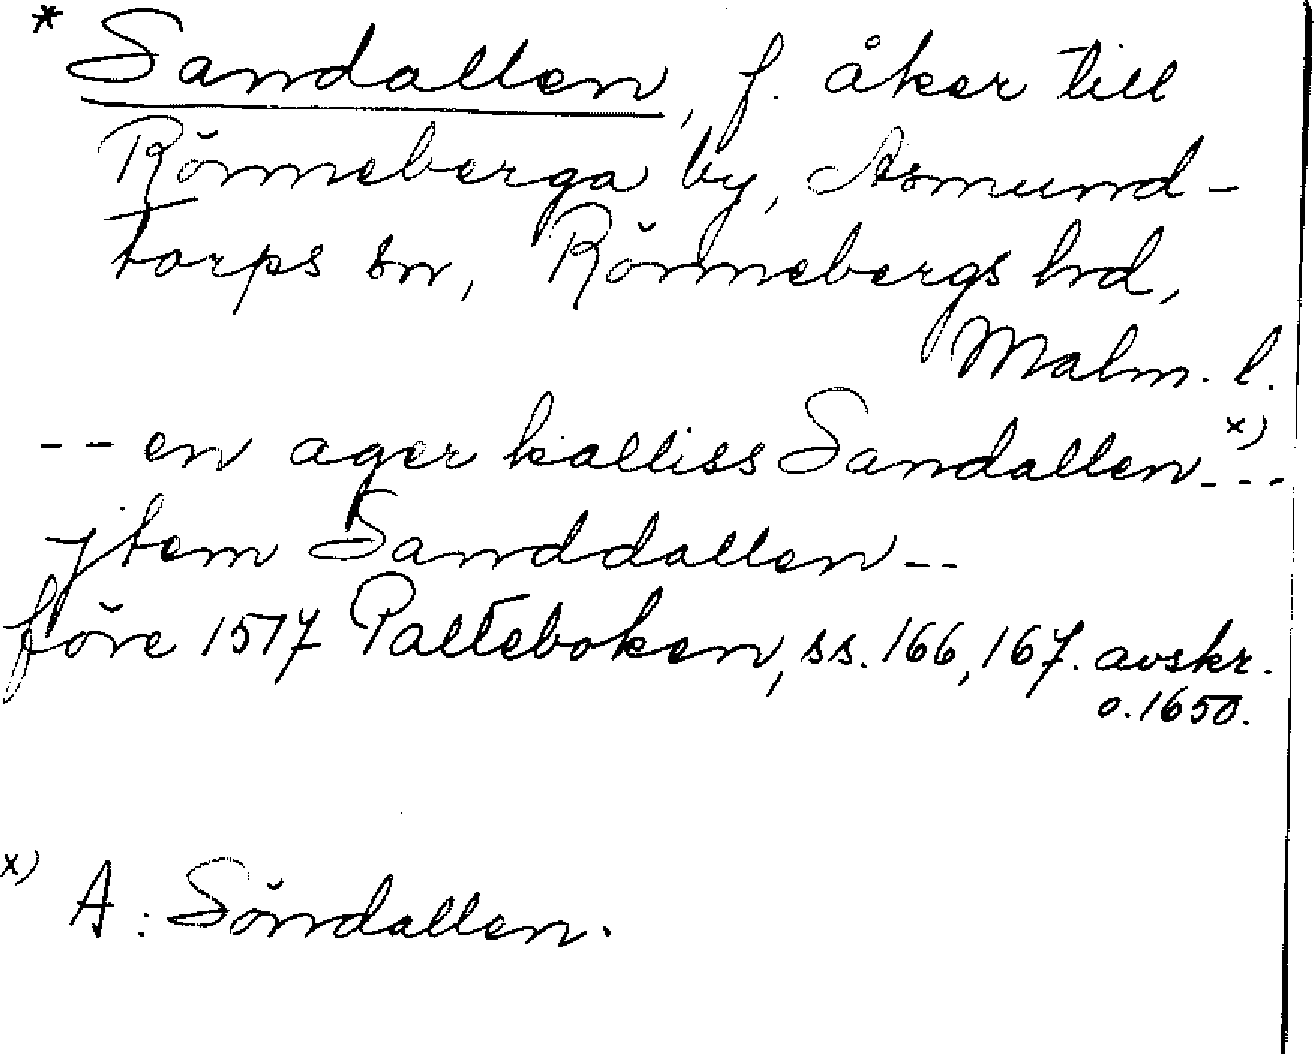 * Sandallen, f. åker till
Rönneberga by, Asmund-
torps sn, Rönnebergs hd,
Malm. l.
-- en ager kalliss Sandallen x) ---
jtem Sanddallen --
före 1517 Palteboken, ss. 166, 167. avskr.
o. 1650.
x) A: Söndallen.